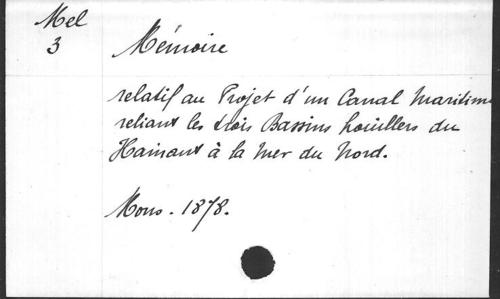 Mel
3
Mémoire
relatif au Projet d'un Canal maritime
reliant les trois Bassins houillers du
Hainaut à la mer du Nord.
Mons. 1878.